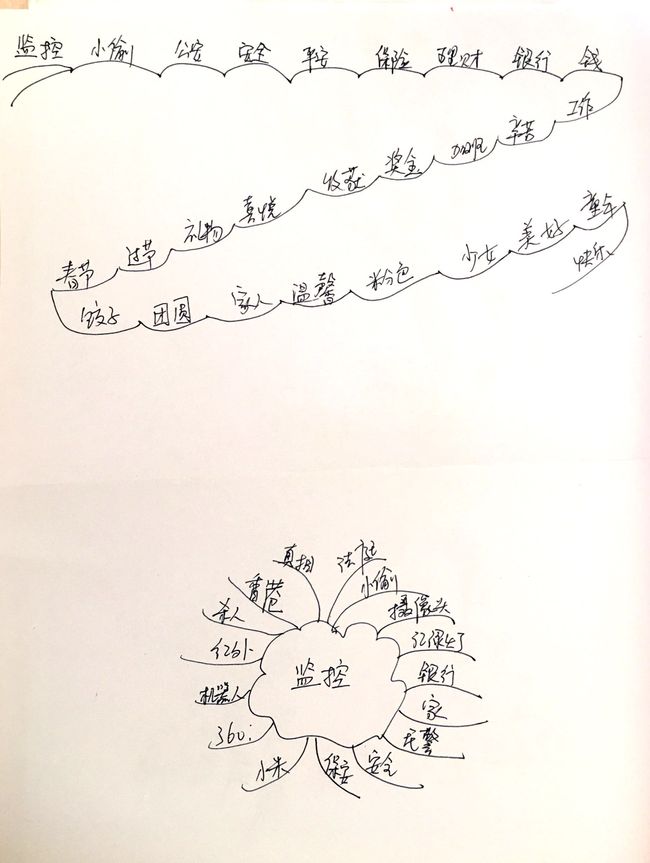 监控 小偷 公安 安全 平安 保险 理财 银行 钱
工作 辛苦 加班 奖金 收获 喜悦 礼物 过节 春节
饺子 团圆 家人 温馨 粉色 少女 美好 童年
快乐
监控
真相 法庭
香港 小偷
杀人 摄像头
红外
银行
机器人 家
360 无警
小米 保安 安全